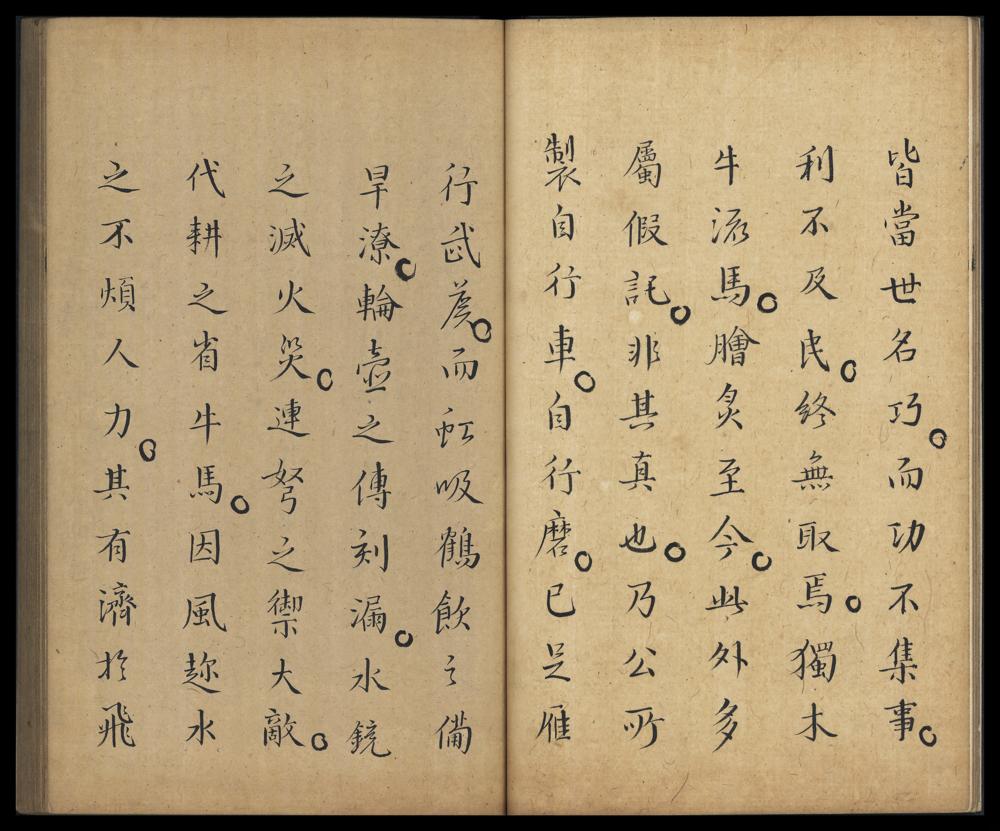 皆當世名巧。而功不集事。
利不及民。終無取焉。獨木
牛流馬。膾炙至今。此外多
屬假託。非其真也。乃公所
製自行車。自行磨。已足雁
行武矦。而虹吸鶴飲之備
旱潦。輪壺之傳刻漏。水鏡
之滅火災。連弩之禦大敵。
代耕之省牛馬。因風趂水
之不煩人力。其有濟於飛